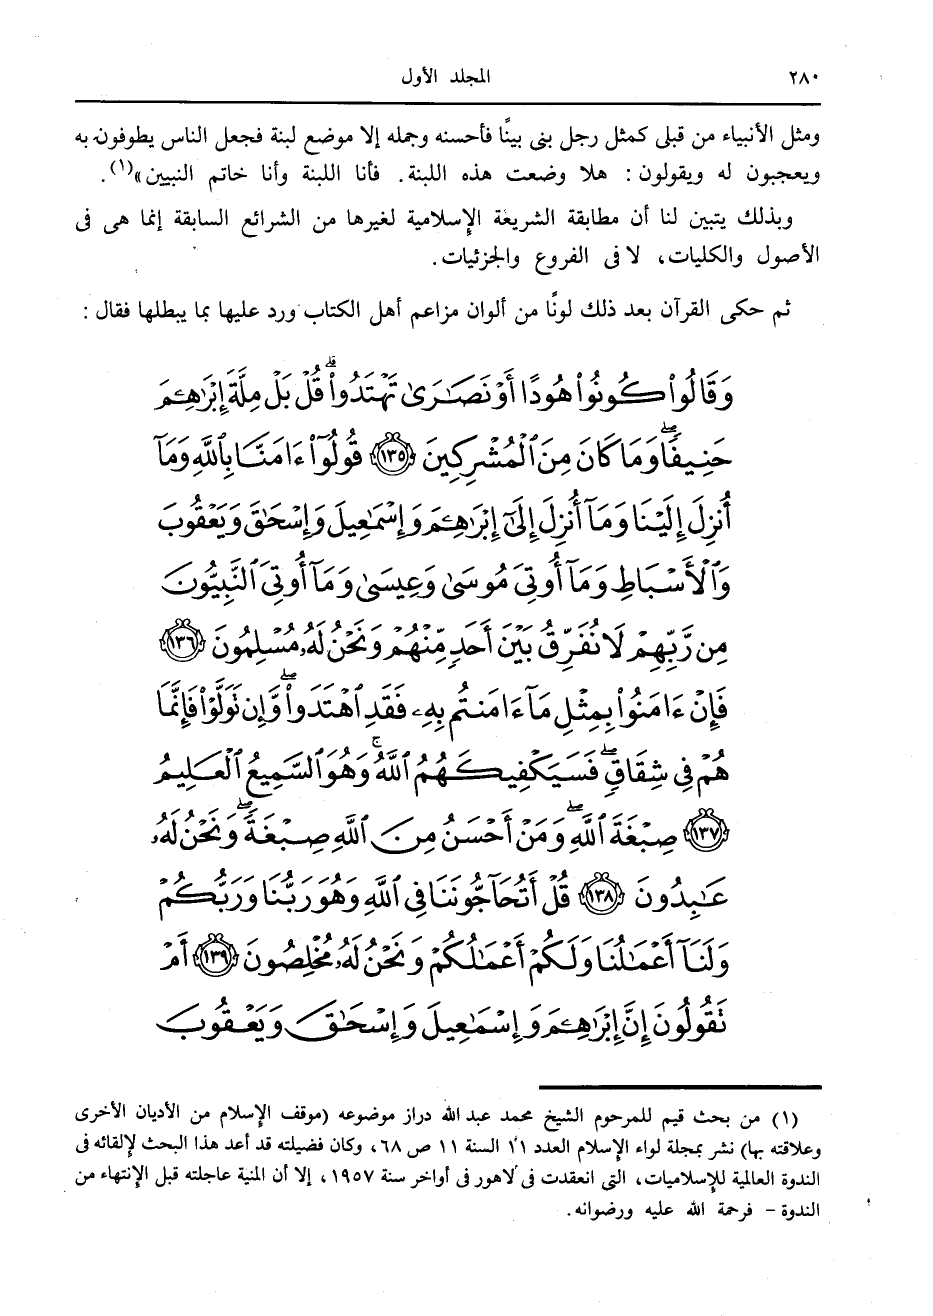 ٢٨٠
المجلد الأول
ومثل الأنبياء من قبلى كمثل رجل بنى بيتًا فأحسنه وجمله إلا موضع لبنة فجعل الناس يطوفون به
ويعجبون له ويقولون : هلا وضعت هذه اللبنة . فأنا اللبنة وأنا خاتم النبيين»(١).
وبذلك يتبين لنا أن مطابقة الشريعة الإسلامية لغيرها من الشرائع السابقة إنما هى فى
الأصول والكليات، لا فى الفروع والجزئيات .
ثم حكى القرآن بعد ذلك لونًا من ألوان مزاعم أهل الكتاب ورد عليها بما يبطلها فقال :
وَقَالُواْ كُونُواْ هُودًا أَوْ نَصَٰرَىٰ تَهْتَدُواْ ۗ قُلْ بَلْ مِلَّةَ إِبْرَٰهِـۧمَ
حَنِيفًا ۖ وَمَا كَانَ مِنَ ٱلْمُشْرِكِينَ ١٣٥ قُولُوٓاْ ءَامَنَّا بِٱللَّهِ وَمَآ
أُنزِلَ إِلَيْنَا وَمَآ أُنزِلَ إِلَىٰٓ إِبْرَٰهِـۧمَ وَإِسْمَٰعِيلَ وَإِسْحَٰقَ وَيَعْقُوبَ
وَٱلْأَسْبَاطِ وَمَآ أُوتِيَ مُوسَىٰ وَعِيسَىٰ وَمَآ أُوتِيَ ٱلنَّبِيُّونَ
مِن رَّبِّهِمْ لَا نُفَرِّقُ بَيْنَ أَحَدٍ مِّنْهُمْ وَنَحْنُ لَهُۥ مُسْلِمُونَ ١٣٦
فَإِنْ ءَامَنُواْ بِمِثْلِ مَآ ءَامَنتُم بِهِۦ فَقَدِ ٱهْتَدَواْ ۖ وَّإِن تَوَلَّوْاْ فَإِنَّمَا
هُمْ فِي شِقَاقٍ ۖ فَسَيَكْفِيكَهُمُ ٱللَّهُ ۚ وَهُوَ ٱلسَّمِيعُ ٱلْعَلِيمُ
١٣٧ صِبْغَةَ ٱللَّهِ ۖ وَمَنْ أَحْسَنُ مِنَ ٱللَّهِ صِبْغَةً ۖ وَنَحْنُ لَهُۥ
عَٰبِدُونَ ١٣٨ قُلْ أَتُحَآجُّونَنَا فِي ٱللَّهِ وَهُوَ رَبُّنَا وَرَبُّكُمْ
وَلَنَآ أَعْمَٰلُنَا وَلَكُمْ أَعْمَٰلُكُمْ وَنَحْنُ لَهُۥ مُخْلِصُونَ ١٣٩ أَمْ
تَقُولُونَ إِنَّ إِبْرَٰهِـۧمَ وَإِسْمَٰعِيلَ وَإِسْحَٰقَ وَيَعْقُوبَ
(١) من بحث قيم للمرحوم الشيخ محمد عبد الله دراز موضوعه (موقف الإسلام من الأديان الأخرى
وعلاقته بها) نشر بمجلة لواء الإسلام العدد ١١ السنة ١١ ص ٦٨، وكان فضيلته قد أعد هذا البحث لإلقائه فى
الندوة العالمية للإسلاميات، التى انعقدت فى لاهور فى أواخر سنة ١٩٥٧ ، إلا أن المنية عاجلته قبل الإنتهاء من
الندوة - فرحمة الله عليه ورضوانه.